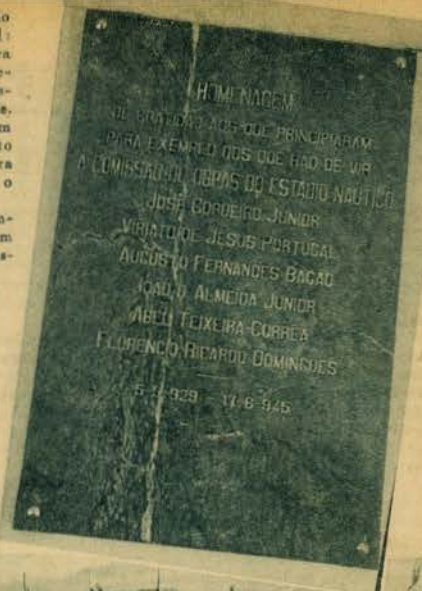 HOMENAGEM
DE GRATIDÃO AOS QUE PRINCIPIARAM
PARA EXEMPLO DOS QUE HÃO DE VIR
A COMISSÃO DE OBRAS DO ESTADIO NAUTICO
JOSÉ CORDEIRO JUNIOR
VIRIATO DE JESUS PORTUGAL
AUGUSTO FERNANDES BAGÃO
JOÃO D'ALMEIDA JUNIOR
ABEL TEIXEIRA CORREA
FLORENCIO RICARDO DOMINGUES
929 17-6-945